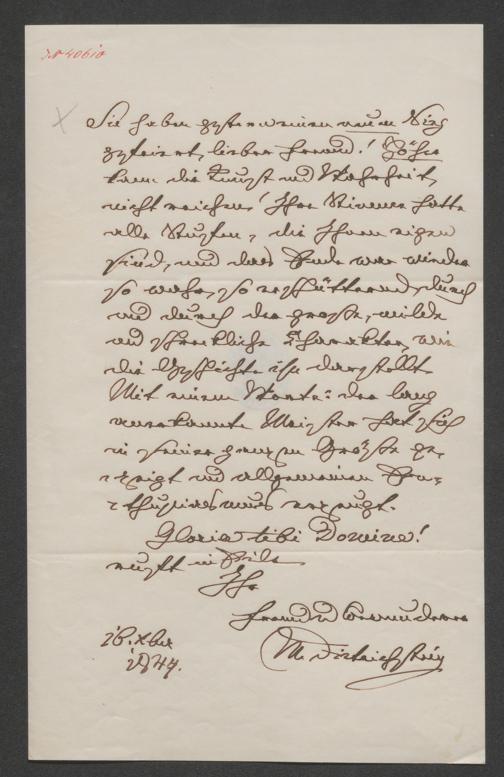 Sie haben gestern einen neuen Sieg
gefeiert, lieber Freund! Höher
kann die Kunst und Wahrheit,
nicht reichen! Ihre Stimme hatte
alle Stufen, die Ihnen eigen
sind, und das Ende war wieder
so wahr, so erschütternd, durch
und durch der große, wilde
und schreckliche Charakter, wie
die Geschichte ihn darstellt
Mit einem Worte: der lang
anerkannte Meister hat sich
in seiner ganzen Größe ge-
zeigt und allgemeinen En-
thusiasmus erzeugt.
Gloria tibi Domine!
ruft in Eile
Ihr
Freund u Bewunderer
M. Dietrichstein
Xber